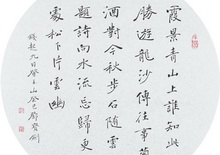 霞景青山上誰知此
勝遊龍沙傳往事菊
酒對今秋步石隨雲
題詩向水流忘歸更
處松下片雲幽
錢起九日登玉山